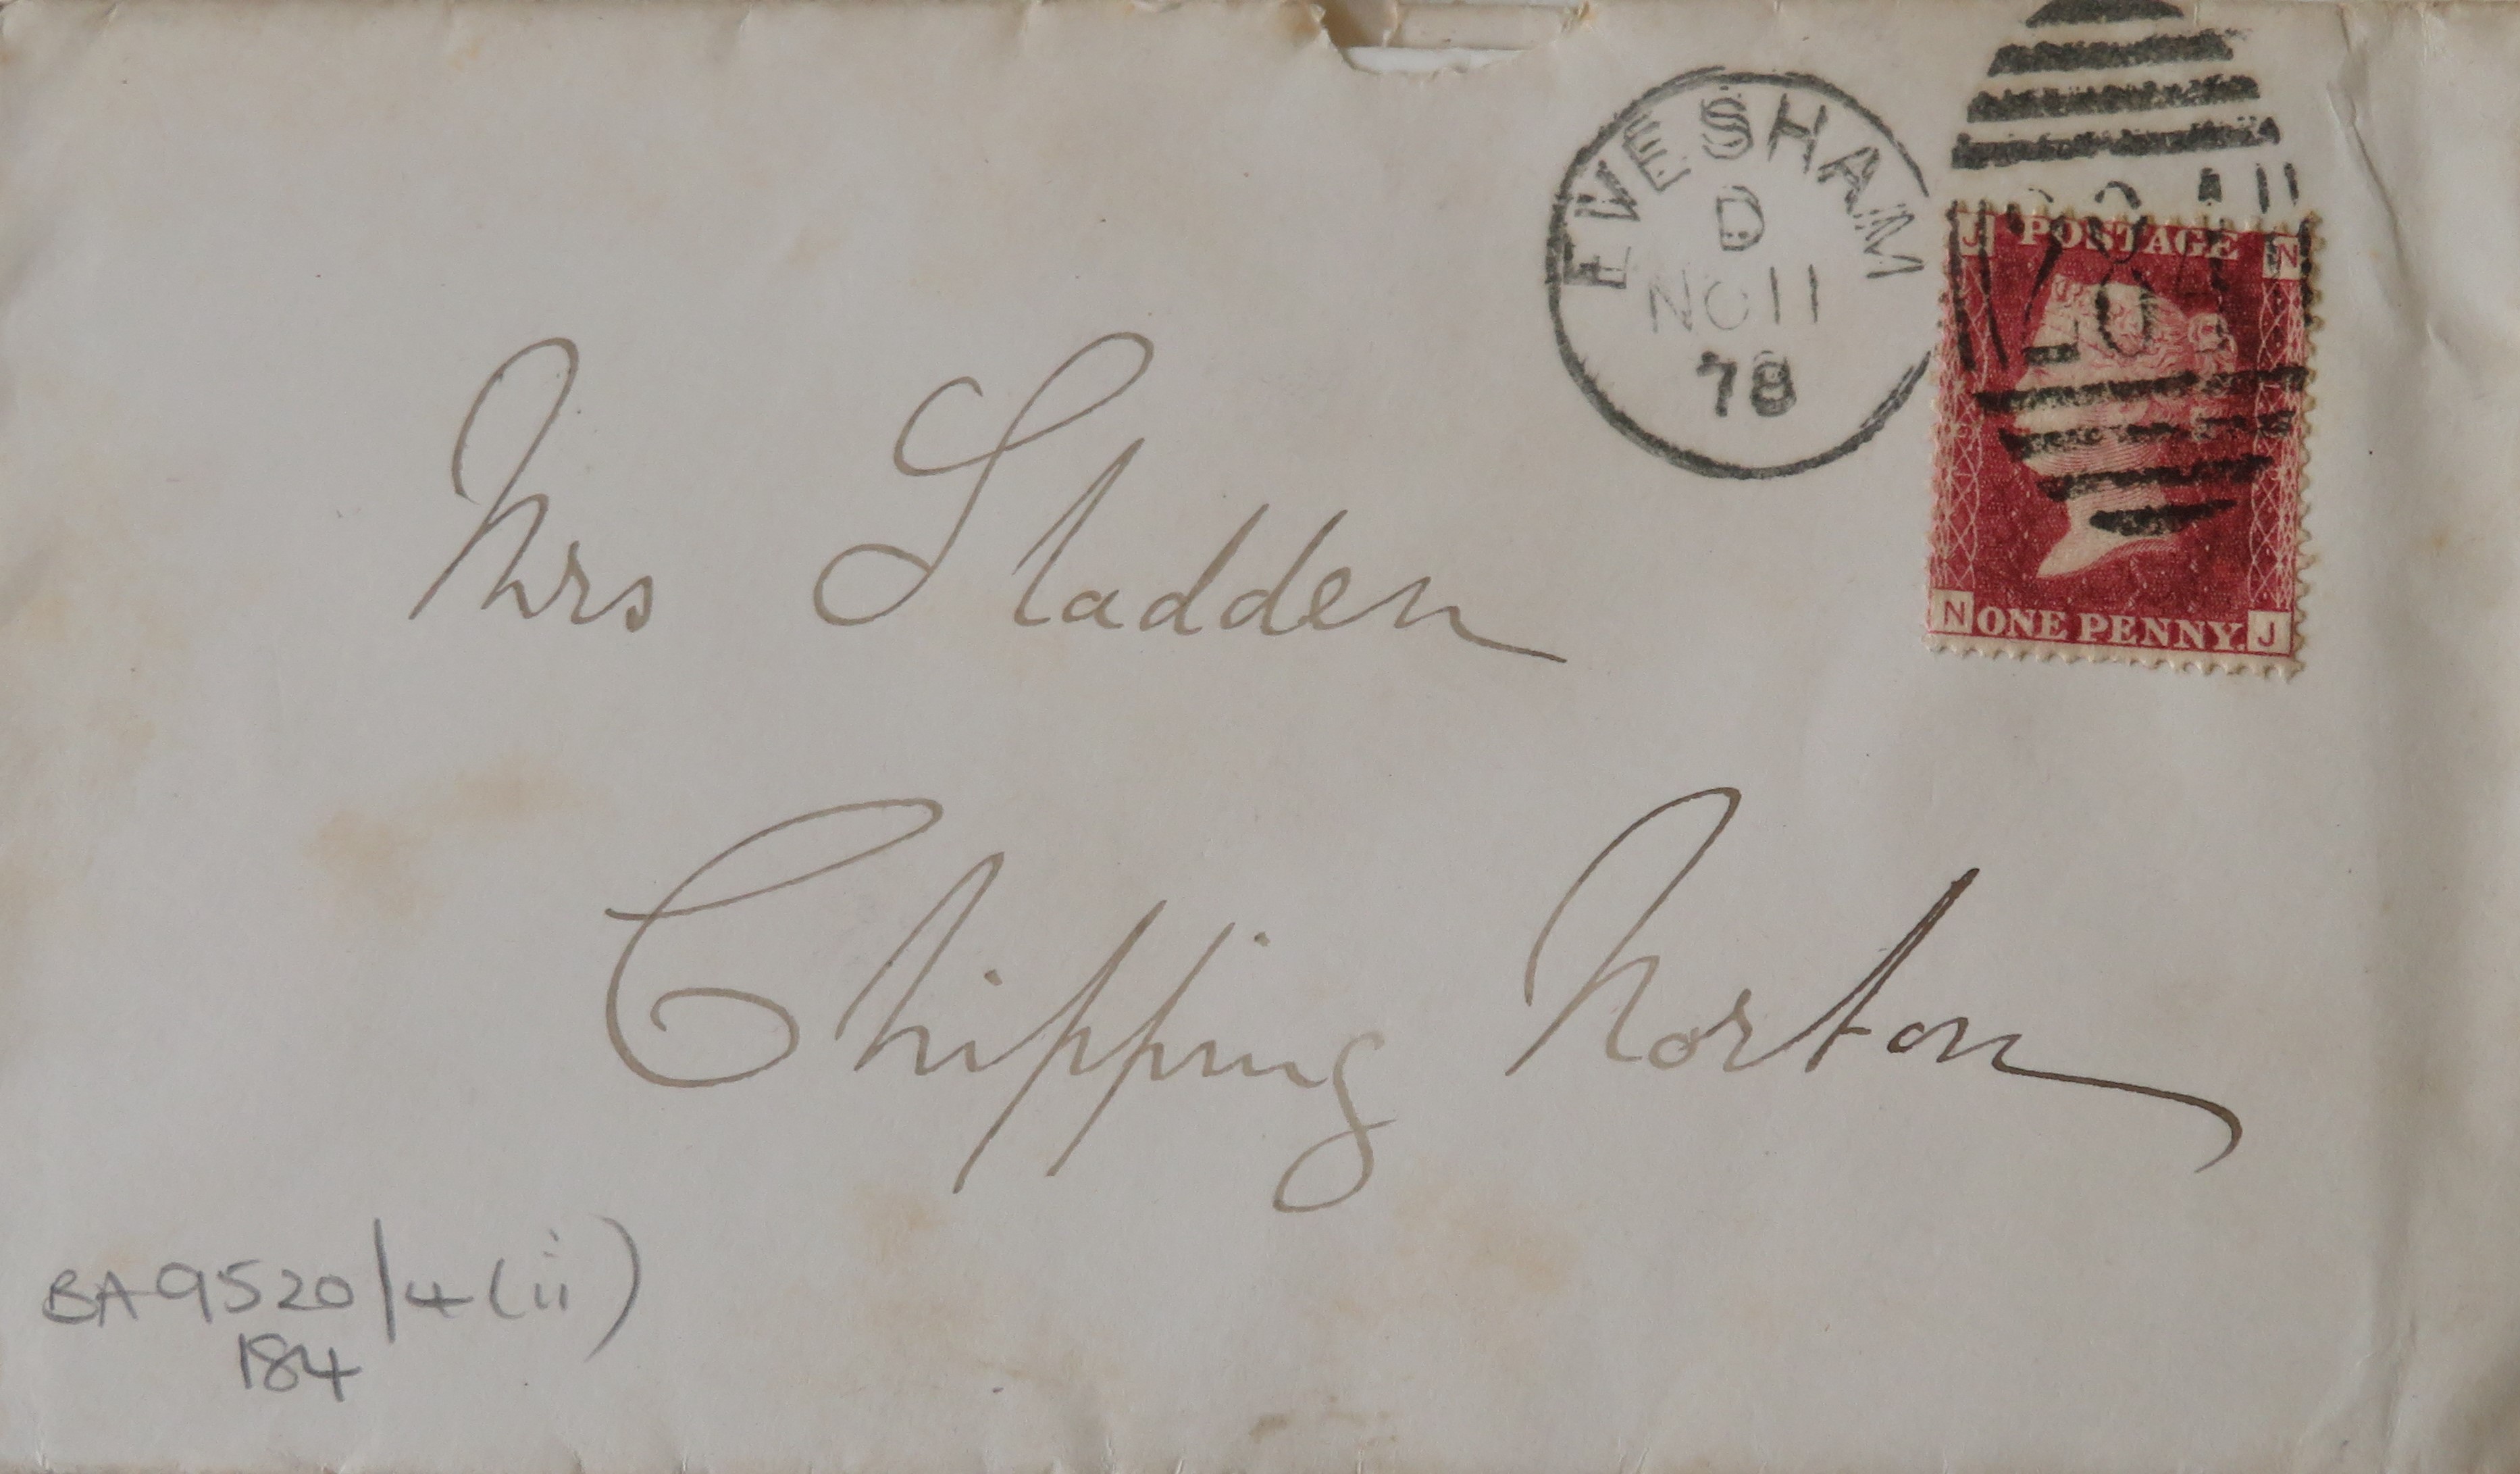 EVESHAM
D
NO 11
78
J POSTAGE N
N ONE PENNY. J
Mrs Sladden
Chipping Norton
BA9520/4(ii)
184